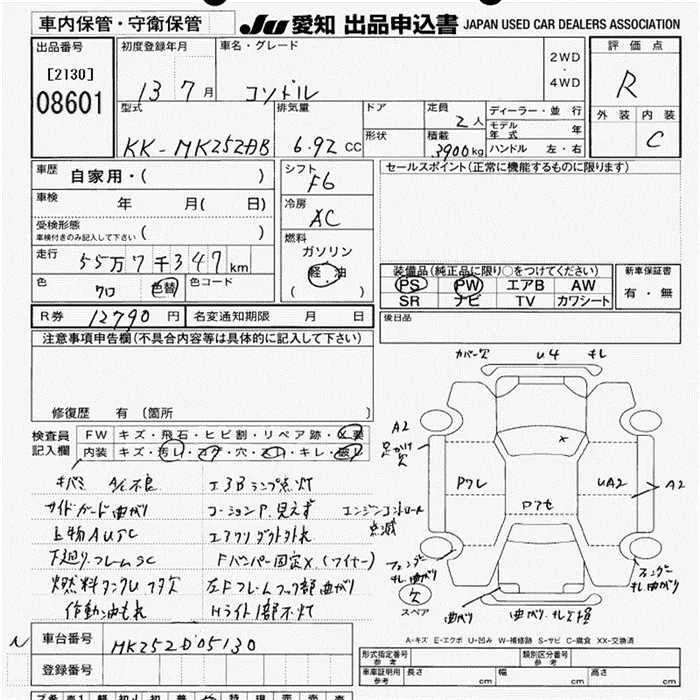 車内保管・守衛保管
JU 愛知 出品申込書 JAPAN USED CAR DEALERS ASSOCIATION
出品番号
[2130]
08601
初度登録年月
13 7 月
車名・グレード
コンドル
2WD
・
4WD
評価点
R
外装 内装
C
型式
KK-MK252BB
排気量
6.92 CC
ドア
形状
定員
2人
積載
3900kg
ディーラー・並行
モデル年式 年
ハンドル 左・右
車歴
自家用・( )
車検
年 月( 日)
受検形態
車検付きのみ記入して下さい ( )
走行
55万7千347km
色
クロ 色替 色コード
シフト
F6
冷房
AC
燃料
ガソリン
軽・油
( )
セールスポイント(正常に機能するものに限ります)
装備品(純正品に限り○をつけてください)
PS PW エアB AW
SR ナビ TV カワシート
新車保証書
有・無
R券 12790 円 名変通知期限 月 日
後日品
注意事項申告欄(不具合内容等は具体的に記入して下さい)
修復歴 有 (箇所 )
検査員
記入欄
FW キズ・飛石・ヒビ割・リペア跡・X要
内装 キズ・汚レ・コゲ・穴・スレ・キレ・破レ
キバミ A/C不良 エアBランプ点灯
サイドガード曲がり コーションP.見えず エンジンコントロール点滅
上物AUSC エアクリダクト外れ
下廻りフレームSC Fバンパー固定X(ワイヤー)
燃料タンクUフタ欠 左Fフレームフック部曲がり
作動油もれ Hライト1部不灯
カバー欠 U4 キレ
A2
足かけ欠
X
Pフレ
Pアセ
UA2
A2
フェンダーキレ曲がり
フェンダーキレ曲がり
欠
スペア
曲がり
A-キズ E-エクボ U-凹み W-補修跡 S-サビ C-腐食 XX-交換済
車台番号 MK252D05130
登録番号
形式指定番号
参考
類別区分番号
参考
車庫証明用
参考
長さ cm 幅 cm 高さ cm